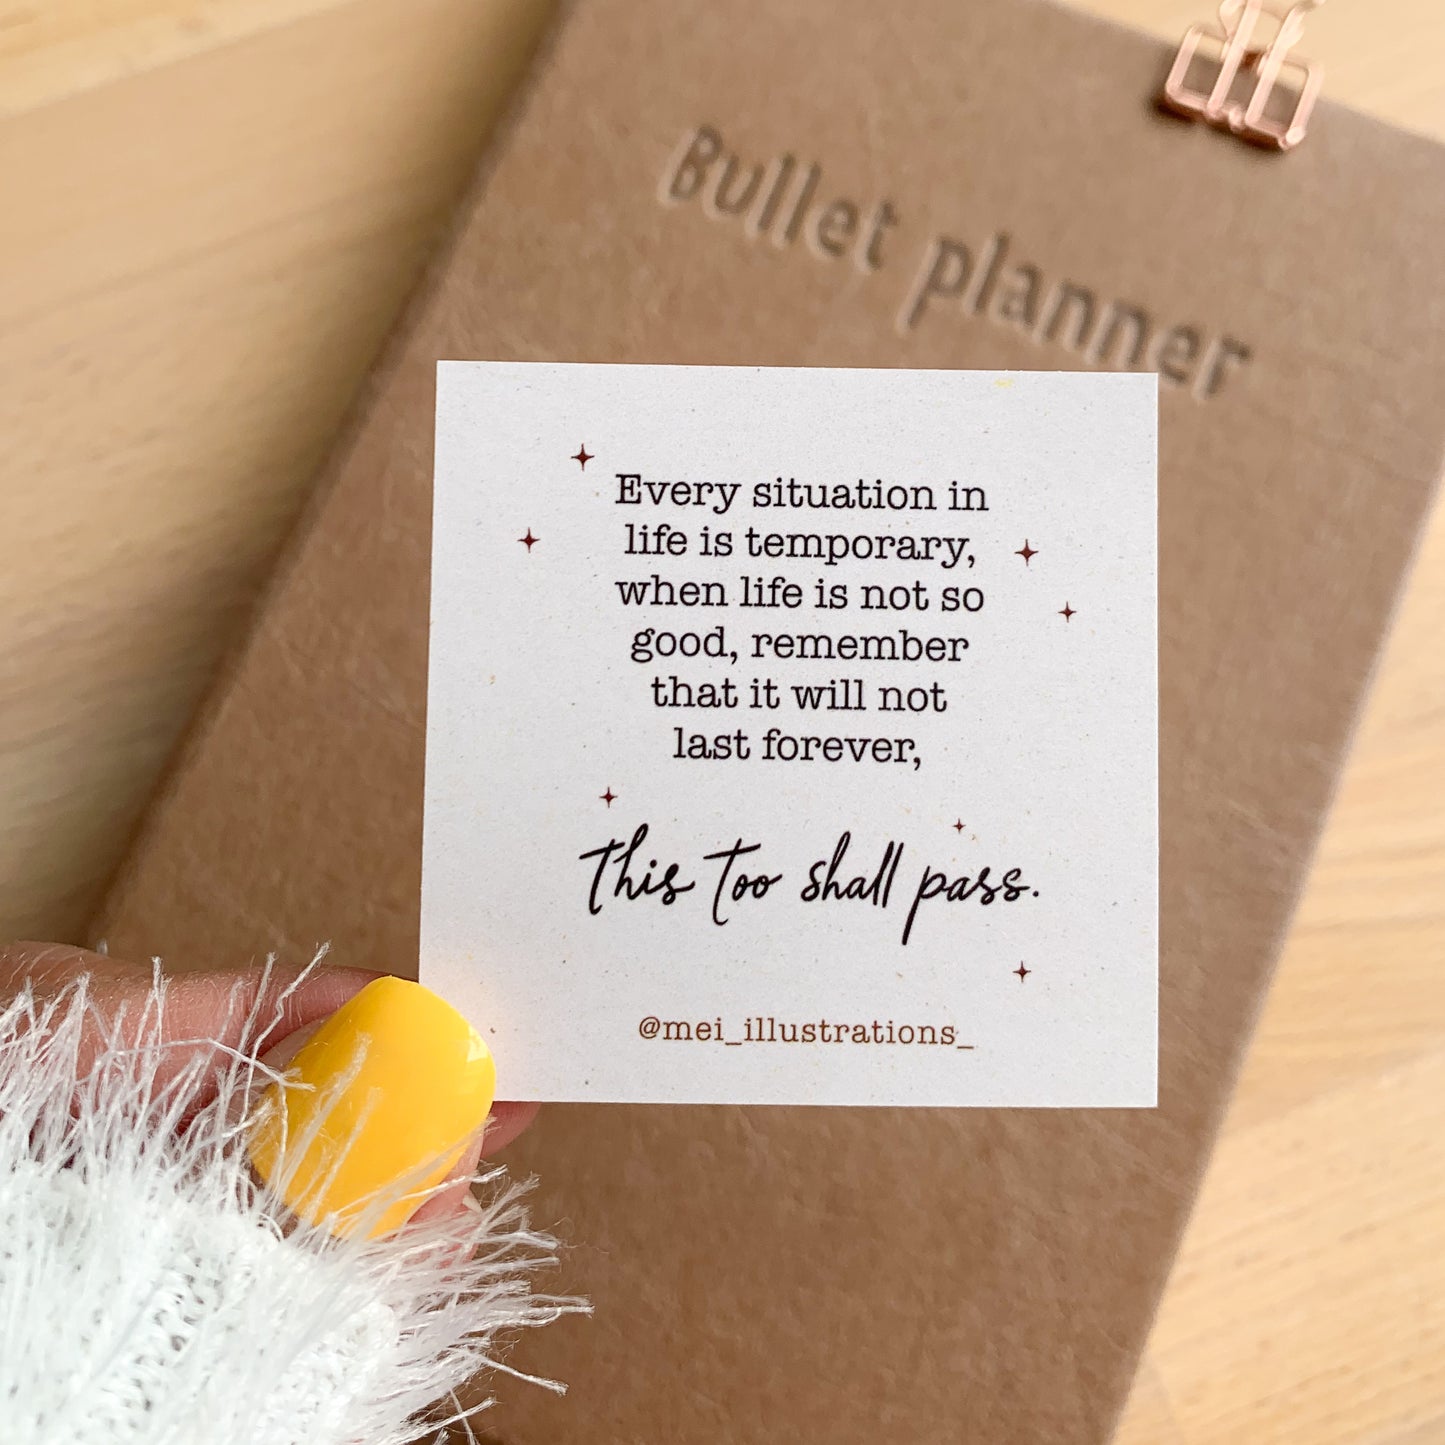 Bullet planner
Every situation in
life is temporary,
when life is not so
good, remember
that it will not
last forever,
this too shall pass.
@mei_illustrations_